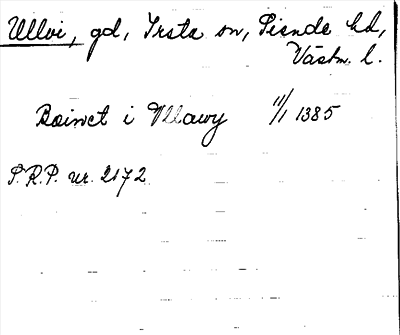 Ullvi, gd, Irsta sn, Siende hd,
Västm. l.
Boinct i Vllawy 11/1 1385
S.R.P. nr. 2172